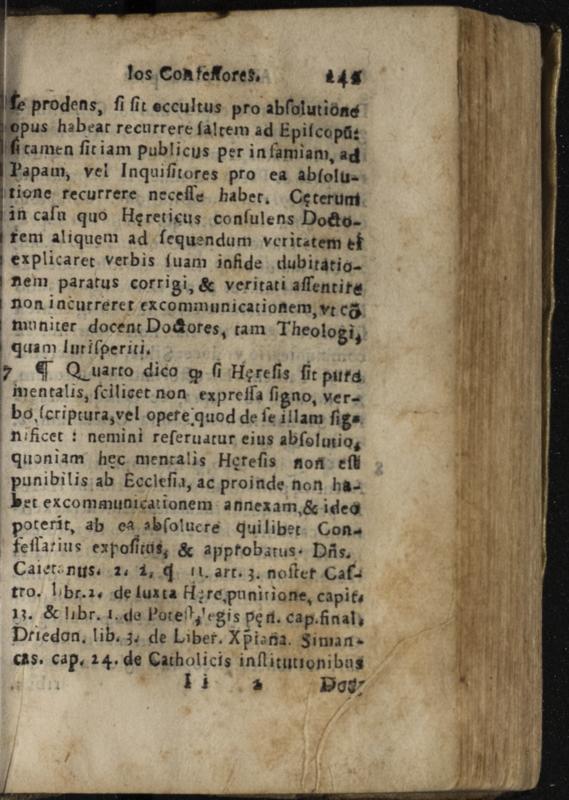 los Confeſſores. 242
ſe prodens, ſi ſit occultus pro abſolutione
opus habeat recurrere ſaltem ad Epiſcopũ:
ſi tamen ſit iam publicus per infamiam, ad
Papam, vel Inquiſitores pro ea abſolu-
tione recurrere neceſſe habet. Cęterum
in caſu quo Hęreticus conſulens Docto-
rem aliquem ad ſequendum veritatem ei
explicaret verbis ſuam infide dubitatio-
nem paratus corrigi, & veritati aſſentire
non incurreret excommunicationem, vt cõ
muniter docent Doctores, tam Theologi,
quam Iuriſperiti.
7 ¶ Quarto dico ꝙ ſi Hęreſis ſit pura
mentalis, ſcilicet non expreſſa ſigno, ver-
bo, ſcriptura, vel opere quod de ſe illam ſig-
nificet : nemini reſeruatur eius abſolutio,
quoniam hęc mentalis Hęreſis non eſt
punibilis ab Eccleſia, ac proinde non ha-
bet excommunicationem annexam, & ideo
poterit, ab ea abſoluere quilibet Con-
feſſarius expoſitus, & approbatus. Dñs.
Caietanus. 2. 2. q 11. art. 3. noſter Caſ-
tro. libr. 2. de Iuxta Hęre, punitione, capit.
13. & libr. 1. de Poteſt, legis pęn. cap. final.
Driedon. lib. 3. de Liber. Xp̃iana. Siman-
cas. cap. 24. de Catholicis inſtitutionibus
I i 2 Doct,